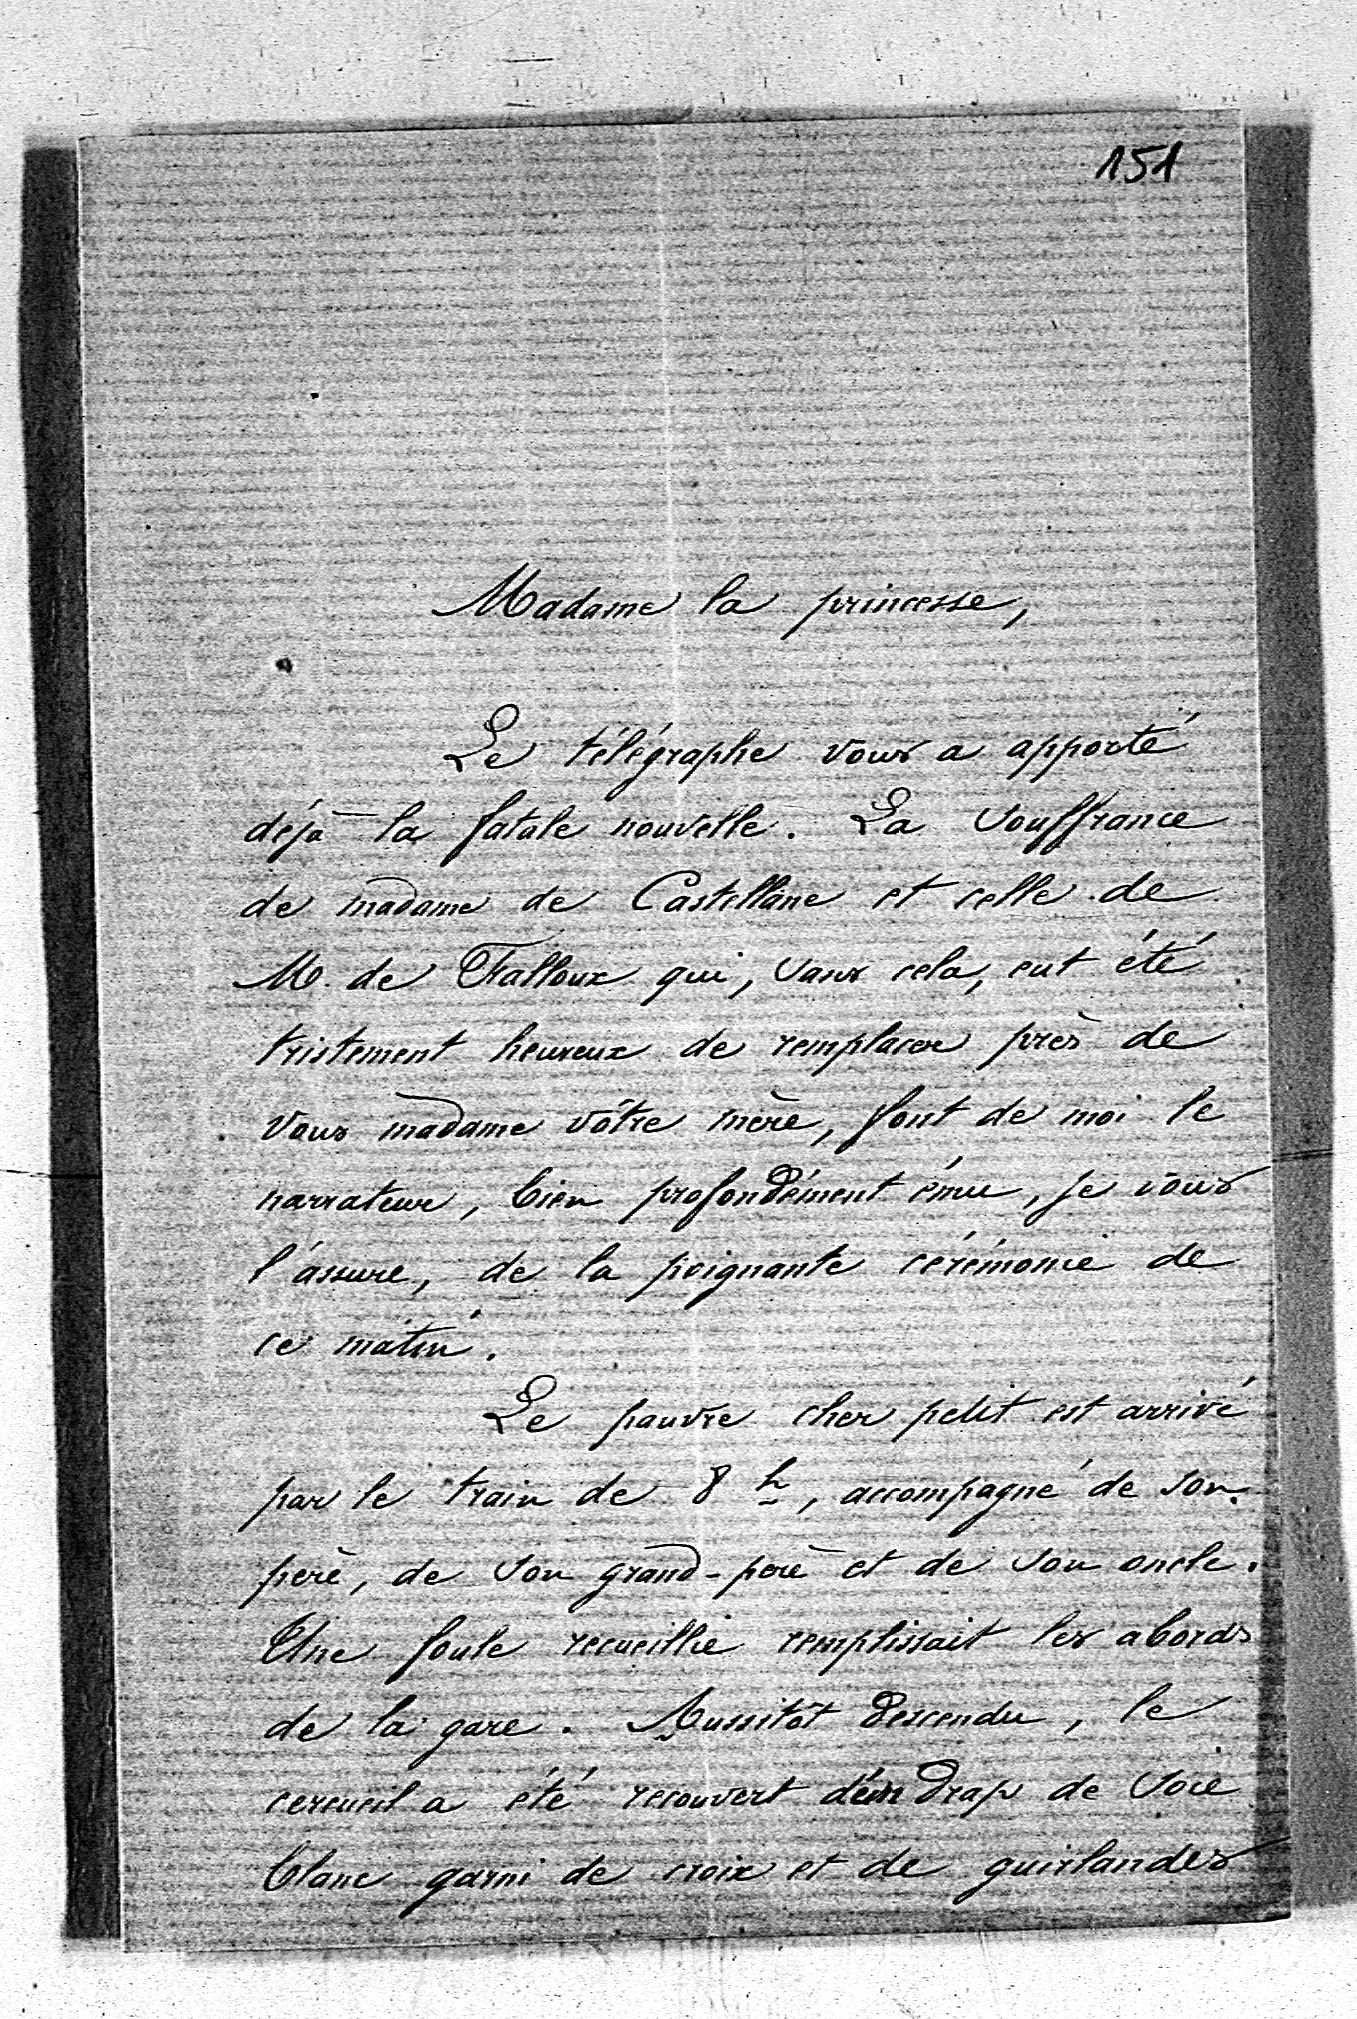 151
Madame la princesse,
Le télégraphe vous a apporté
déjà la fatale nouvelle. La souffrance
de madame de Castellane et celle de
M. de Falloux qui, sans cela, eut été
tristement heureux de remplacer près de
vous madame vôtre mère, font de moi le
narrateur, bien profondément ému, je vous
l'assure, de la poignante cérémonie de
ce matin.
Le pauvre cher petit est arrivé
par le train de 8 h, accompagné de son
père, de son grand-père et de son oncle.
Une foule recueillie remplissait les abords
de la gare. Aussitôt descendu, le
cercueil a été recouvert d'un drap de soie
blanc garni de croix et de guirlandes